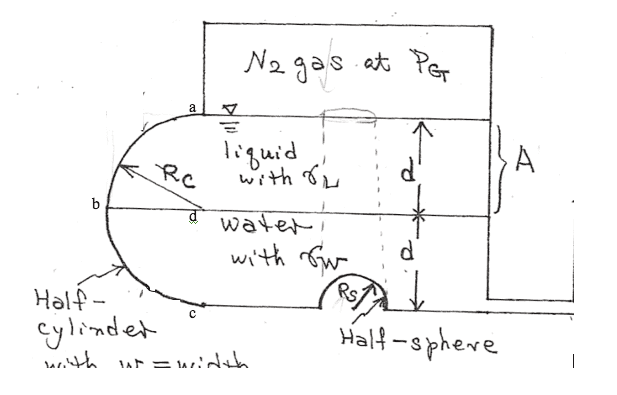 N2 gas at PGT
a
liquid
with γL
Rc
d
A
b
d
water
with γw
d
Rs
Half-
cylinder
with w = width
c
Half-sphere